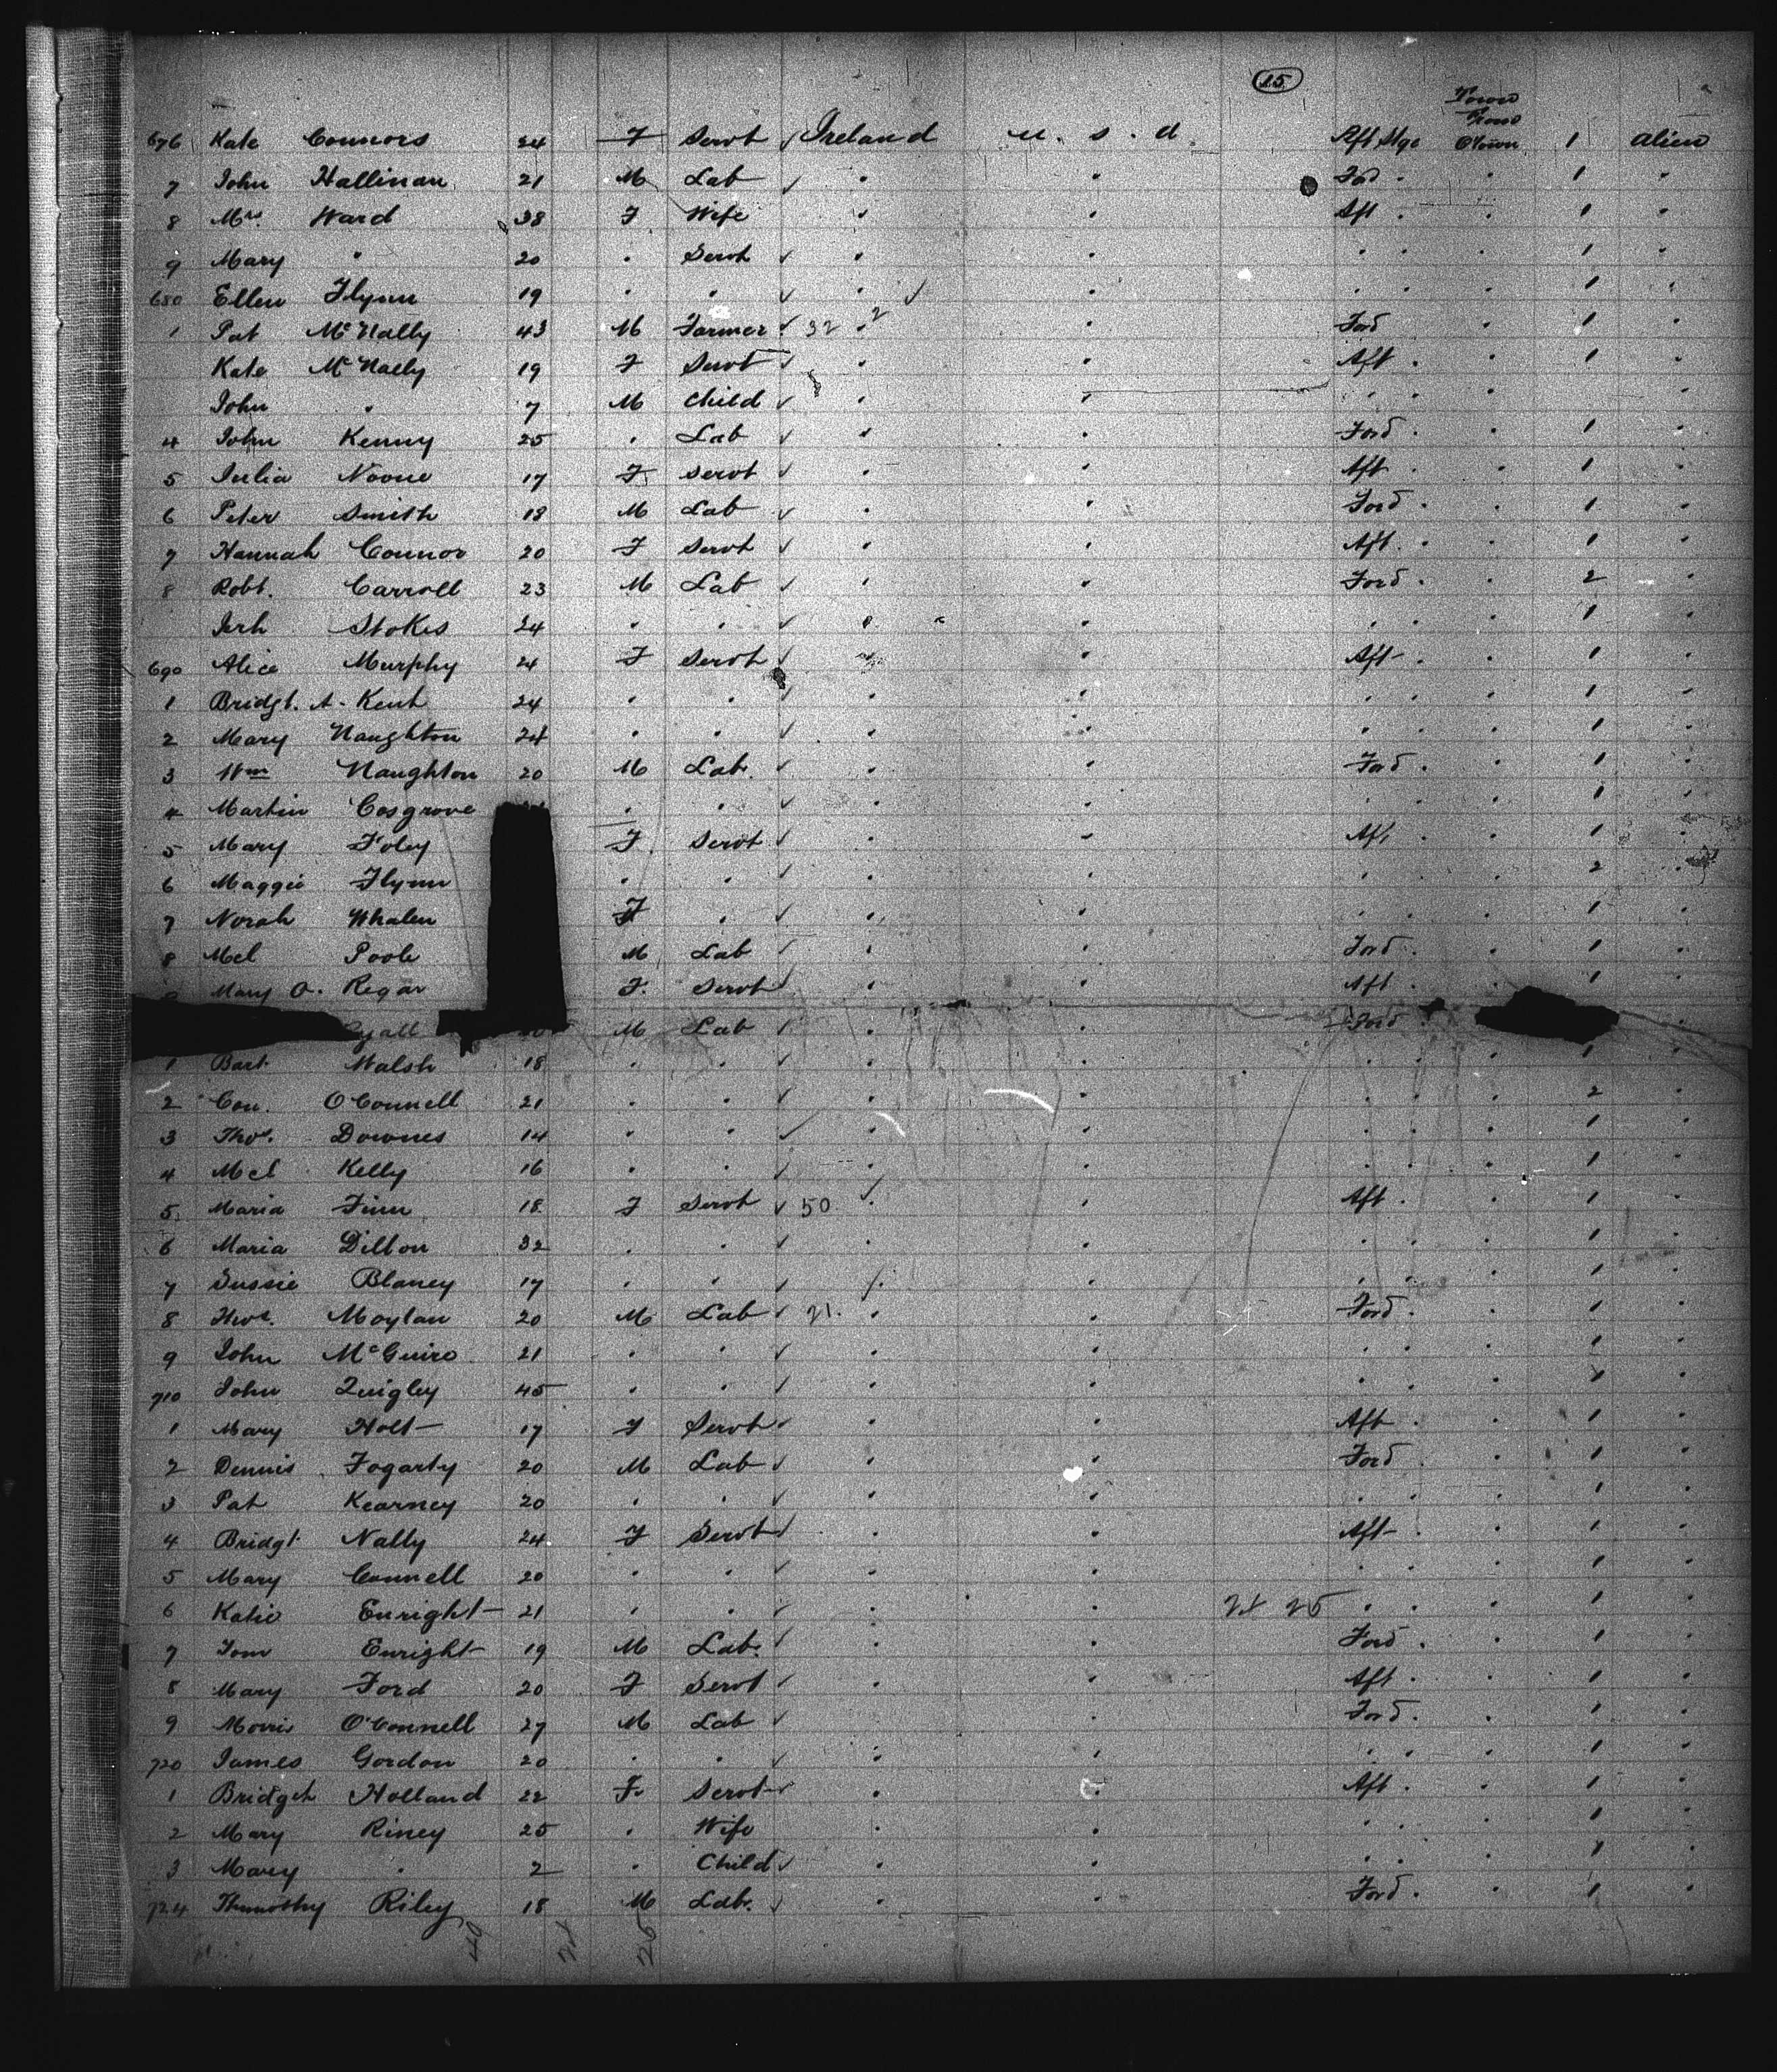 15
From
Q'Town
676 Kate Connors 24 F Servt ✓ Ireland U. S. A Aft Stge 1 Alien
7 John Hallinan 21 M Lab ✓ " " Ford " " 1 "
8 Mrs Ward 38 F Wife " " Aft " " 1 "
9 Mary " 20 " Servt ✓ " " " " " 1 "
680 Ellen Flynn 19 " " ✓ " ✓ " " " " 1 "
1 Pat McNally 43 M Farmer ✓ 32 " 2 " Ford " 1 "
Kate McNally 19 F Servt ✓ " " Aft " " 1 "
John " 7 M Child ✓ " " " " " "
4 John Kenny 25 " Lab ✓ " " Ford " " 1 "
5 Julia Noone 17 F Servt ✓ " " Aft " " 1 "
6 Peter Smith 18 M Lab ✓ " " Ford " " 1 "
7 Hannah Connor 20 F Servt ✓ " " Aft " " 1 "
8 Robt. Carroll 23 M Lab ✓ " " Ford " " 2 "
Jerh Stokes 24 " " ✓ " " " " " 1 "
690 Alice Murphy 24 F Servt ✓ " " Aft " " 1 "
1 Bridgt. A. Kent 24 " " ✓ " " " " " 1 "
2 Mary Naughton 24 " " ✓ " " " " " 1 "
3 Wm Naughton 20 M Lab. ✓ " " Ford " " 1 "
4 Martin Cosgrove " " ✓ " " " " " 1 "
5 Mary Foley F Servt ✓ " " Aft " " 1 "
6 Maggie Flynn " " ✓ " " " " " 2 "
7 Norah Whalen F " ✓ " " " " " 1 "
8 Mcl Poole M Lab ✓ " " Ford " " 1 "
Mary O. Regan F. Servt ✓ " " Aft " " 1 "
M Lab ✓ " " Ford "
1 Bart Walsh 18 " " ✓ " " " " " 1 "
2 Con. O'Connell 21 " " ✓ " " " " " 2 "
3 Thos. Downes 14 " " ✓ " " " " " 1 "
4 Mcl Kelly 16 " " ✓ " " " " " 1 "
5 Maria Finn 18 F Servt ✓ 50 " ✓ " Aft " " 1 "
6 Maria Dillon 32 " " ✓ " " " " " 1 "
7 Sussie Blaney 17 " " ✓ " " " " " 1 "
8 Thos. Moylan 20 M Lab ✓ 21. " " Ford " " 1 "
9 John McGuire 21 " " ✓ " " " " " 1 "
710 John Quigley 45 " " ✓ " " " " " 1 "
1 Mary Holt 17 F Servt ✓ " " Aft " " 1 "
2 Dennis Fogarty 20 M Lab ✓ " " Ford " " 1 "
3 Pat Kearney 20 " " ✓ " " " " " 1 "
4 Bridgt Nally 24 F Servt ✓ " " Aft " " 1 "
5 Mary Connell 20 " " ✓ " " " " " 1 "
6 Katie Enright 21 " " ✓ " " 24 25 " " " 1 "
7 Tom Enright 19 M Lab. ✓ " " Ford " " 1 "
8 Mary Ford 20 F Servt ✓ " " Aft " " 1 "
9 Morris O'Connell 27 M Lab ✓ " " Ford " " 1 "
720 James Gordon 20 " " ✓ " " " " " 1 "
1 Bridget Holland 22 F Servt ✓ " " Aft " " 1 "
2 Mary Riney 25 " Wife " " " " " 1 "
3 Mary " 2 " Child ✓ " " " " 1 "
724 Thimothy Riley 18 M Labr. ✓ " " Ford " " 1 "
40 24 26